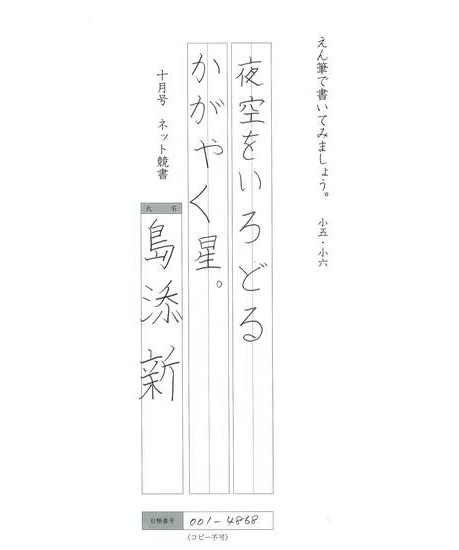 えん筆で書いてみましょう。 小五・小六
夜空をいろどる
かがやく星。
十月号 ネット競書
氏名
島添新
台帳番号 001-4868
(コピー不可)